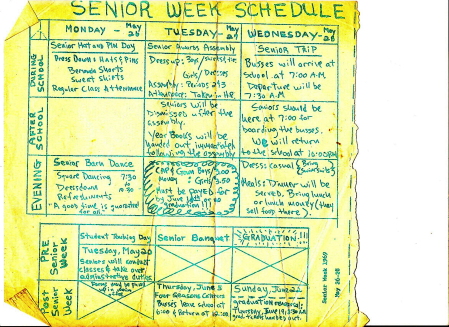 SENIOR WEEK SCHEDULE
MONDAY - May 26
TUESDAY - May 27
WEDNESDAY - May 28
DURING SCHOOL
Senior Hat and PIN Day
Dress Down: Hats & Pins
Bermuda Shorts
Sweat shirts
Regular Class Attendance
Senior Awards Assembly
Dress up: Boys / suits & tie
Girls / Dresses
Assembly: Periods 2 & 3
Attendance: Taken in H.R.
SENIOR TRIP
Busses will arrive at
school at 7:00 A.M.
Departure will be
7:30 A.M.
AFTER SCHOOL
Seniors will be
Dismissed after the
assembly.
Year Books will be
handed out immediately
following the assembly
Seniors should be
here at 7:00 for
boarding the busses.
We will return
to the school at 10:00PM
EVENING
Senior Barn Dance
Square Dancing 7:30
Dress down to 10:30
Refreshments
"A good time is guaranteed
for all."
CAP & Gown
Money
Boys 3.00
Girls 3.50
Must be payed for
by June
graduation!!!
Dress: casual (Bring
Meals: Dinner will be
Served. Bring lunch
or lunch money (they
sell food there)
PRE Senior Week
Student Teaching Day
Tuesday, May 20
Seniors will conduct
classes & take over
administrative duties
Senior Banquet
GRADUATION!!!
Post Senior Week
Thursday, June 5
Four Seasons
Busses leave school at
6:00 & Return at 12:00
Sunday, June 22
graduation rehearsal:
Thursday, June 19,
Senior Week 1969
May 26-28